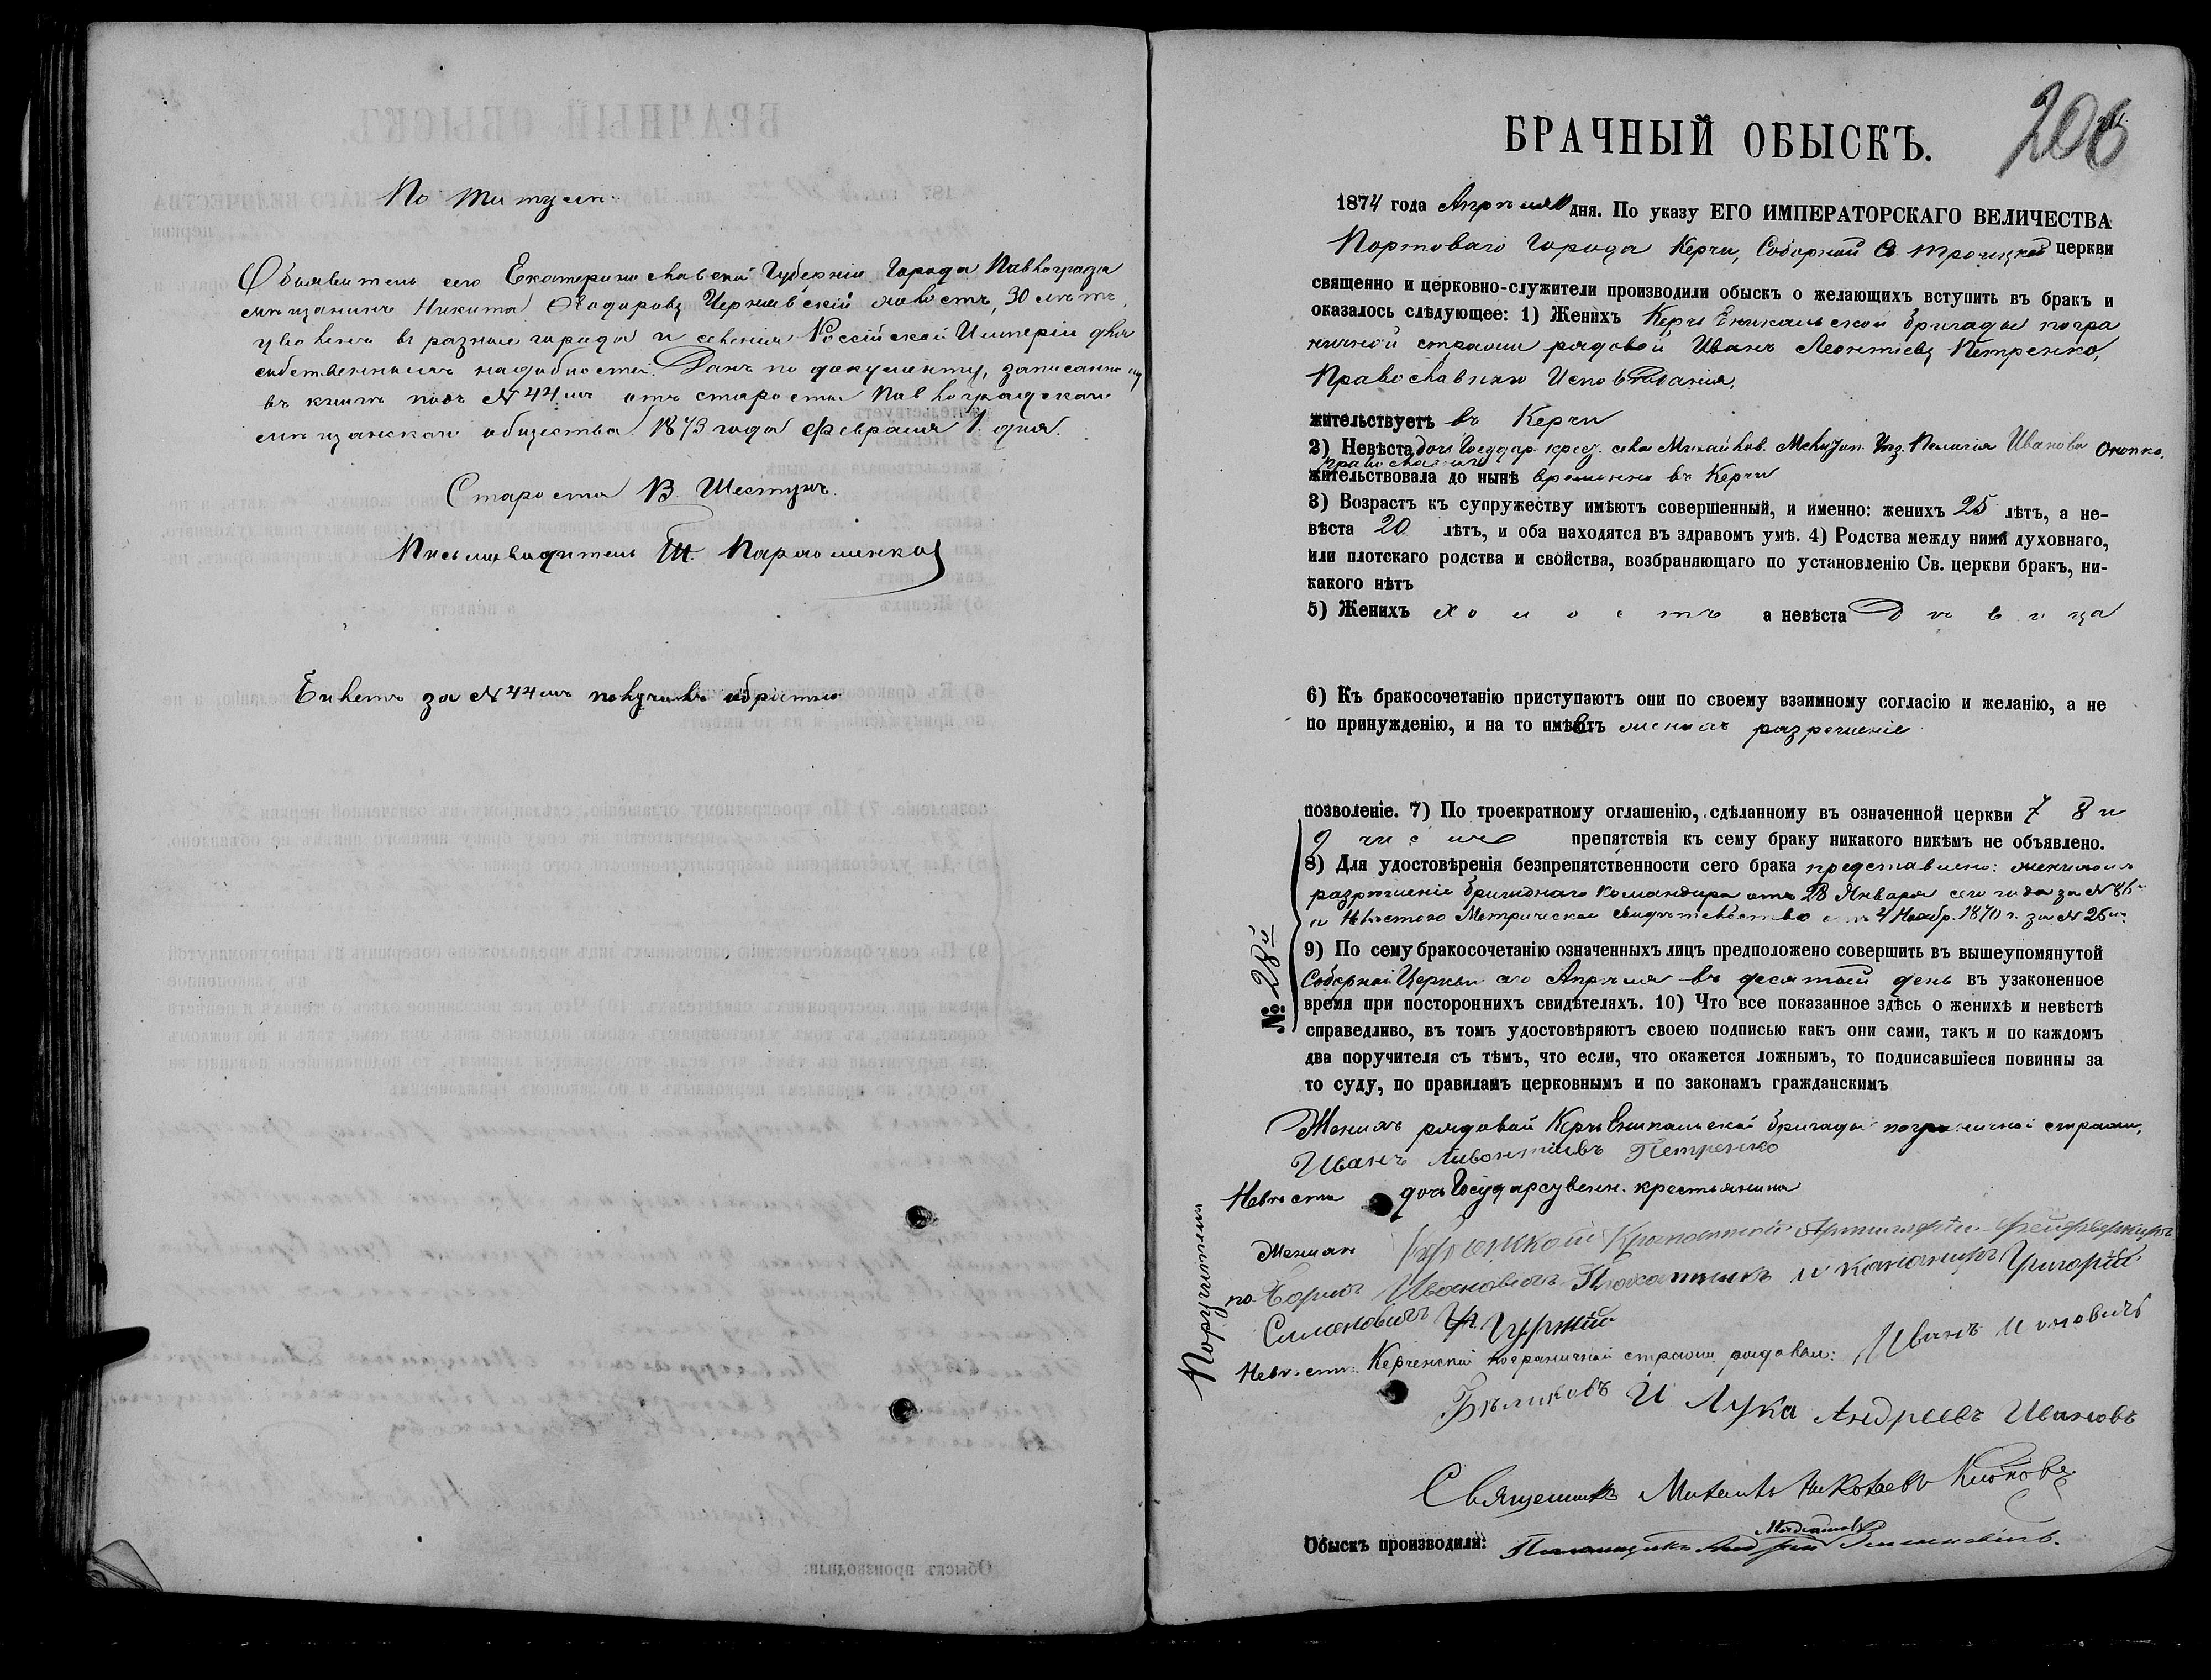 По титулѣ.
Объявитель сего Екатеринославской Губерніи Города Павлограда
мѣщанинъ Никита Ѳеодоровъ Чернявскій холостъ, 30 лѣтъ,
уволенъ въ разные города и селенія Россійской Имперіи для
собственныхъ надобностей. Данъ по документу, записанному
въ книгѣ подъ № 44мъ отъ старосты Павлоградскаго
мѣщанскаго общества 1873 года Февраля 1 дня.
Староста В. Шестунъ.
Письмоводитель Пархоменко
Билетъ за № 44мъ получилъ обратно
206
БРАЧНЫЙ ОБЫСКЪ.
1874 года Апрѣля дня. По указу ЕГО ИМПЕРАТОРСКАГО ВЕЛИЧЕСТВА
Портоваго Города Керчи, Соборной Троицкой церкви
священно и церковно-служители производили обыскъ о желающихъ вступить въ бракъ и
оказалось слѣдующее: 1) Женихъ Керчь Еникальской бригады погра
ничной стражи рядовой Иванъ Леонтіевъ Петренко,
Православнаго Исповѣданія,
жительствуетъ въ Керчи
2) Невѣста дочь Государ. крес. села Михайлов. Мелитоп. Уѣз. Пелагія Иванова Онопко.
православнаго
жительствовала до нынѣ временно въ Керчи
3) Возрастъ къ супружеству имѣютъ совершенный, и именно: женихъ 25 лѣтъ, а не-
вѣста 20 лѣтъ, и оба находятся въ здравомъ умѣ. 4) Родства между ними духовнаго,
или плотскаго родства и свойства, возбраняющаго по установленію Св. церкви бракъ, ни-
какого нѣтъ
5) Женихъ холостъ а невѣста Дѣвица
6) Къ бракосочетанію приступаютъ они по своему взаимному согласію и желанію, а не
по принужденію, и на то имѣетъ женихъ разрѣшеніе
позволеніе. 7) По троекратному оглашенію, сдѣланному въ означенной церкви 7 8 и
9 числѣ препятствія къ сему браку никакого никѣмъ не объявлено.
8) Для удостовѣренія безпрепятственности сего брака представлено: женихомъ
разрѣшеніе бригаднаго Командира отъ 28 Января сего года за №
а невѣстою Метрическое свидѣтельство отъ 4 Ноябр. 1870 г. за №
№ 28й
9) По сему бракосочетанію означенныхъ лицъ предположено совершить въ вышеупомянутой
Соборной Церкви сего Апрѣля въ десятый день въ узаконенное
время при постороннихъ свидѣтеляхъ. 10) Что все показанное здѣсь о женихѣ и невѣстѣ
справедливо, въ томъ удостовѣряютъ своею подписью какъ они сами, такъ и по каждомъ
два поручителя съ тѣмъ, что если, что окажется ложнымъ, то подписавшіеся повинны за
то суду, по правиламъ церковнымъ и по законамъ гражданскимъ
Женихъ рядовой Керчь Еникальской бригады пограничной стражи,
Иванъ Ливонтіевъ Петренко
Невѣста дочь Государсувенн. крестьянина
Поручители
Женихѣ Крепостной Артилеріи Фейерверкеръ
по Ивановичъ и канониръ Григорій
Симоновичъ
Невѣстѣ Керченской пограничной стражи рядовые: Иванъ
Бѣликовъ И Лука Андреевъ Ивановъ
Священникъ Михаилъ Николаевъ
Обыскъ производили: